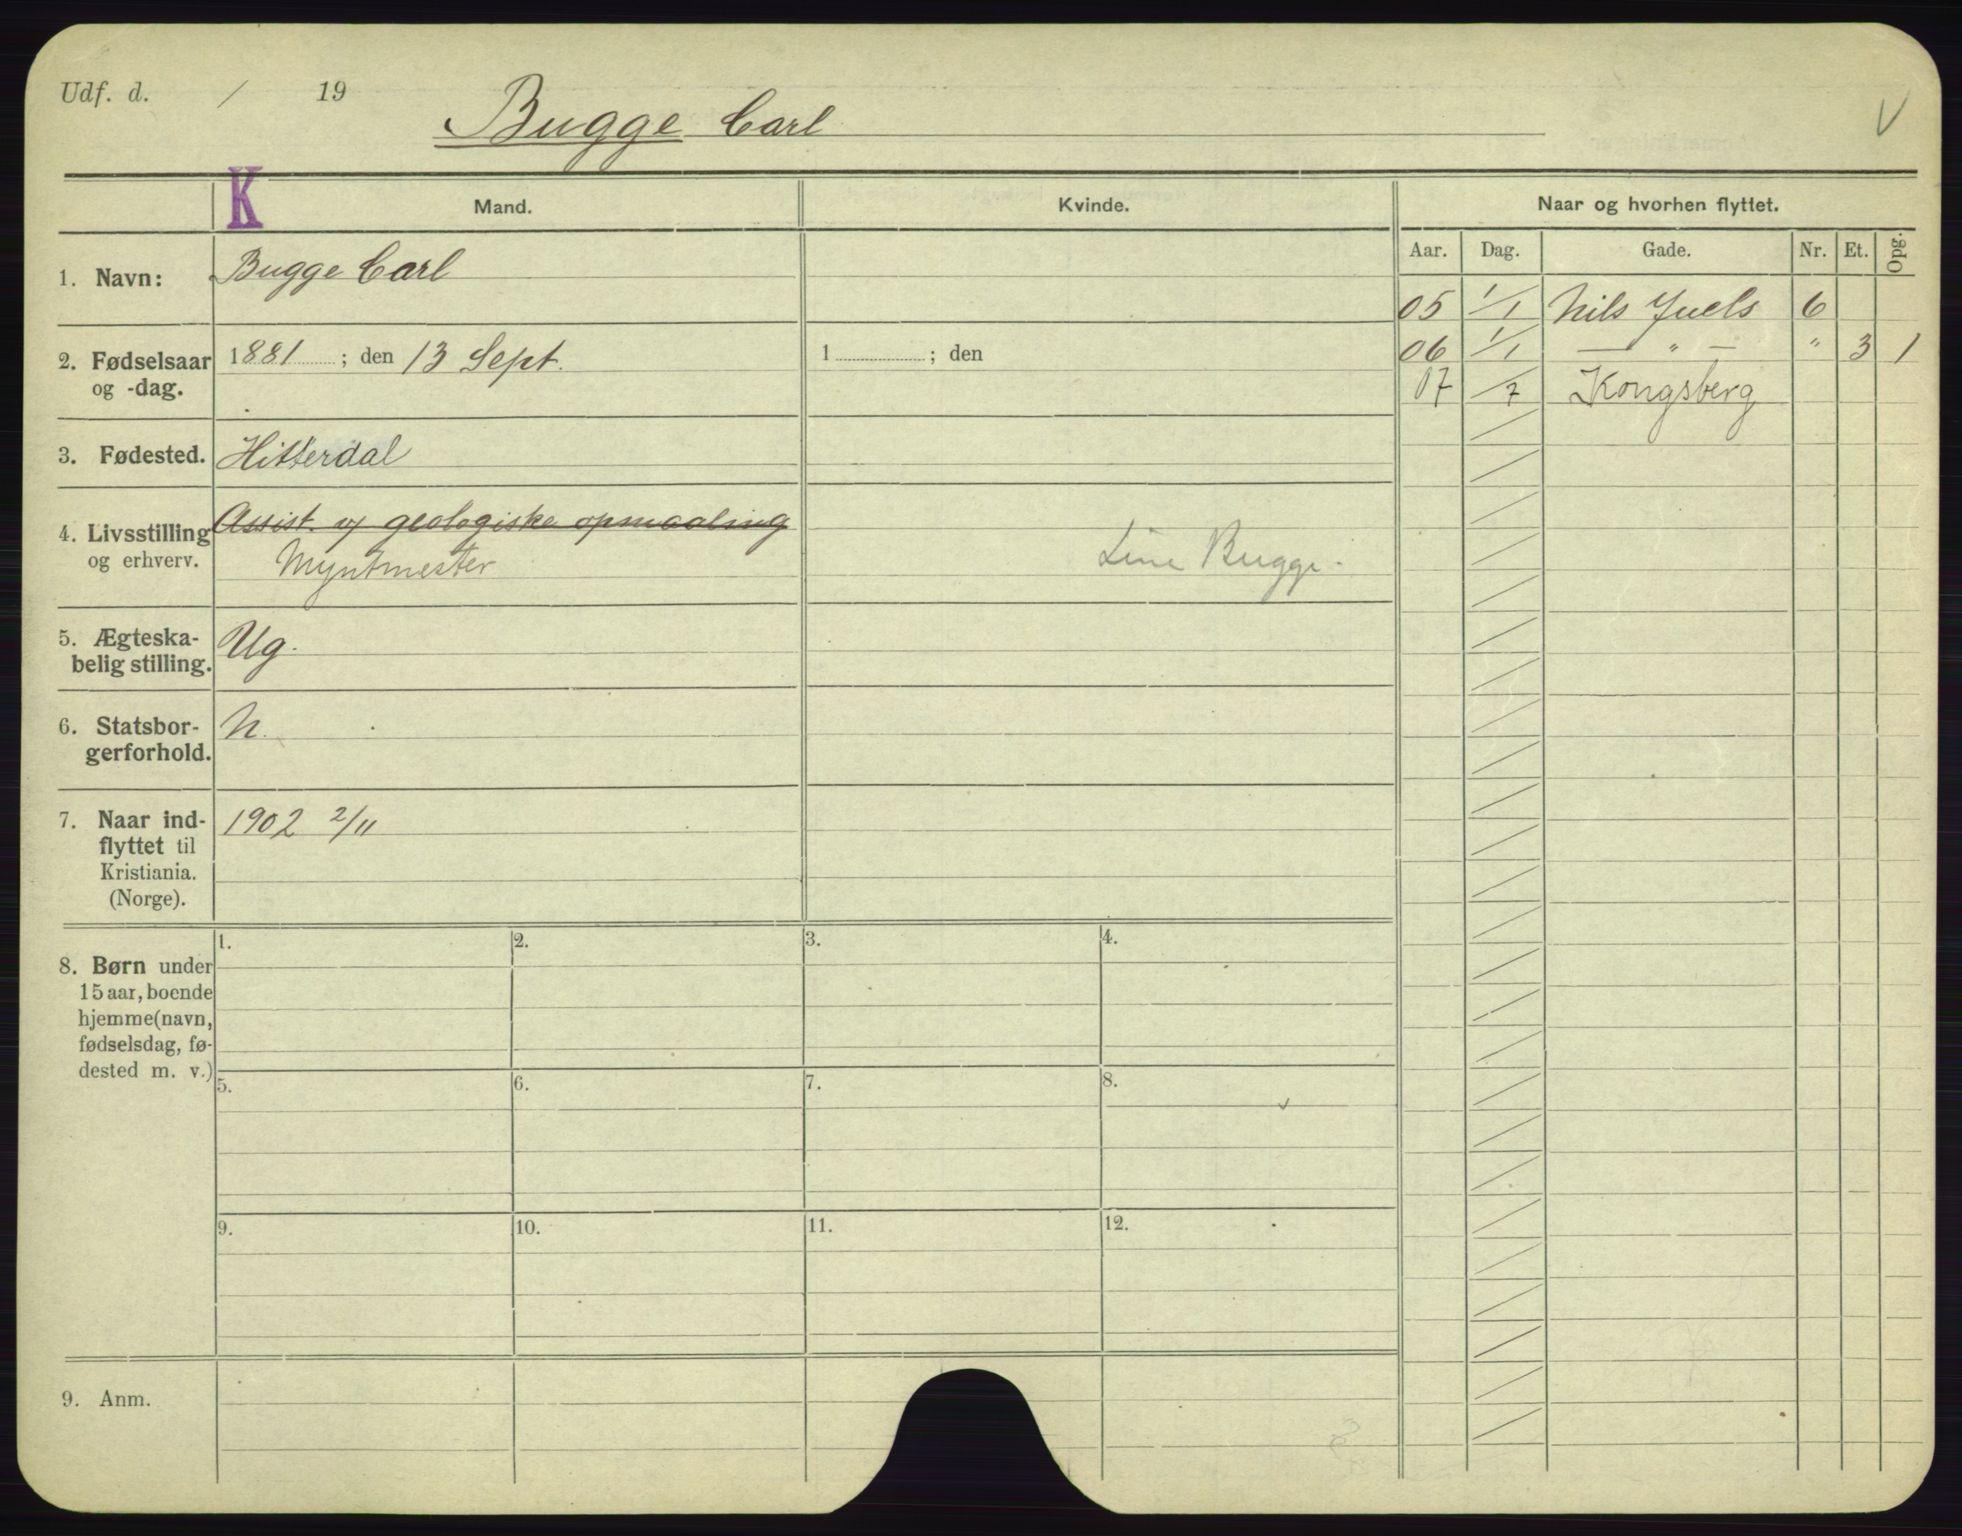 Udf. d. / 19
Bugge Carl
V
K
Mand.
Kvinde.
Naar og hvorhen flyttet.
Aar. Dag. Gade. Nr. Et. Opg.
1. Navn: Bugge Carl
05 1/1 Nils Juels 6
2. Fødselsaar og -dag. 1881 ; den 13 Sept.
1 ; den
06 1/1 — " — " 3 1
07 /7 Kongsberg
3. Fødested. Hitterdal
4. Livsstilling og erhverv. Assist. v/ geologiske opmaaling
Myntmester
Line Bugge.
5. Ægteska-
belig stilling. Ug.
6. Statsbor-
gerforhold. N.
7. Naar ind-
flyttet til
Kristiania.
(Norge).
1902 2/11
8. Børn under
15 aar, boende
hjemme (navn,
fødselsdag, fø-
dested m. v.)
1. 2. 3. 4.
5. 6. 7. 8.
9. 10. 11. 12.
9. Anm.